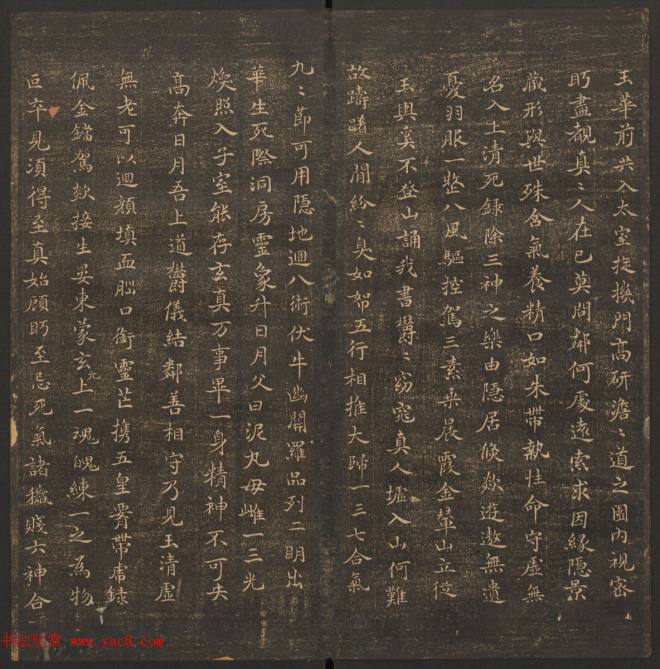 玉華前共入太室璇璣門高研澹〻道之園內視密
盻盡覩真〻人在己莫問鄰何處遠索求因緣隱景
藏形與世殊含氣養精口如朱帶執性命守虛無
名入上清死録除三神之樂由隱居倏欻遊遨無遺
憂羽服一整八風驅控駕三素乗晨霞金輦山立從
玉輿奚不登山誦我書欝〻窈窕真人墟入山何難
故躊躇人間紛〻臭如帤五行相推大歸一三七合氣
九〻節可用隱地迴八術伏牛幽闕羅品列二明出
華生死際洞房靈象升日月父曰泥丸母雌一三光
煥照入子室能存玄真万事畢一身精神不可失
高奔日月吾上道欝儀結鄰善相守乃見玉清虛
無老可以迴顏填血腦口銜靈芒携五皇霄帶虎籙
佩金鐺駕欻接生宴東蒙玄九上一魂魄練一之為物
叵卒見須得至真始顧盻至忌死氣諸穢賤六神合一
书法欣赏 www.yac8.com